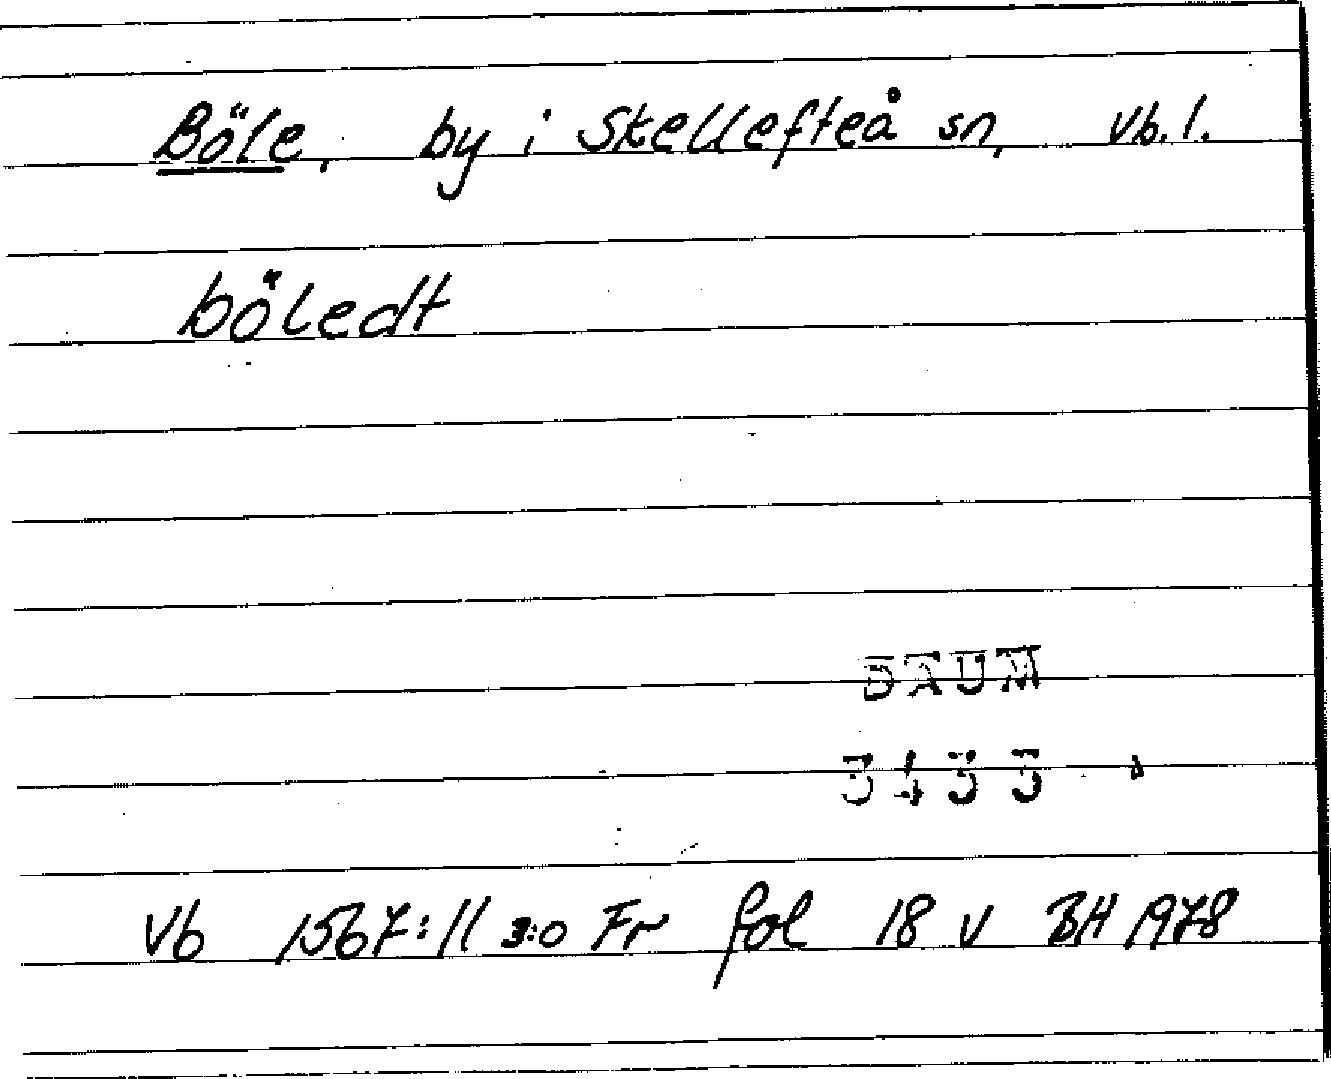 Böle, by i Skellefteå sn, Vb. l.
böledt
DAUM
Vb 1567:11 3:0 Fr fol 18 v BH 1978